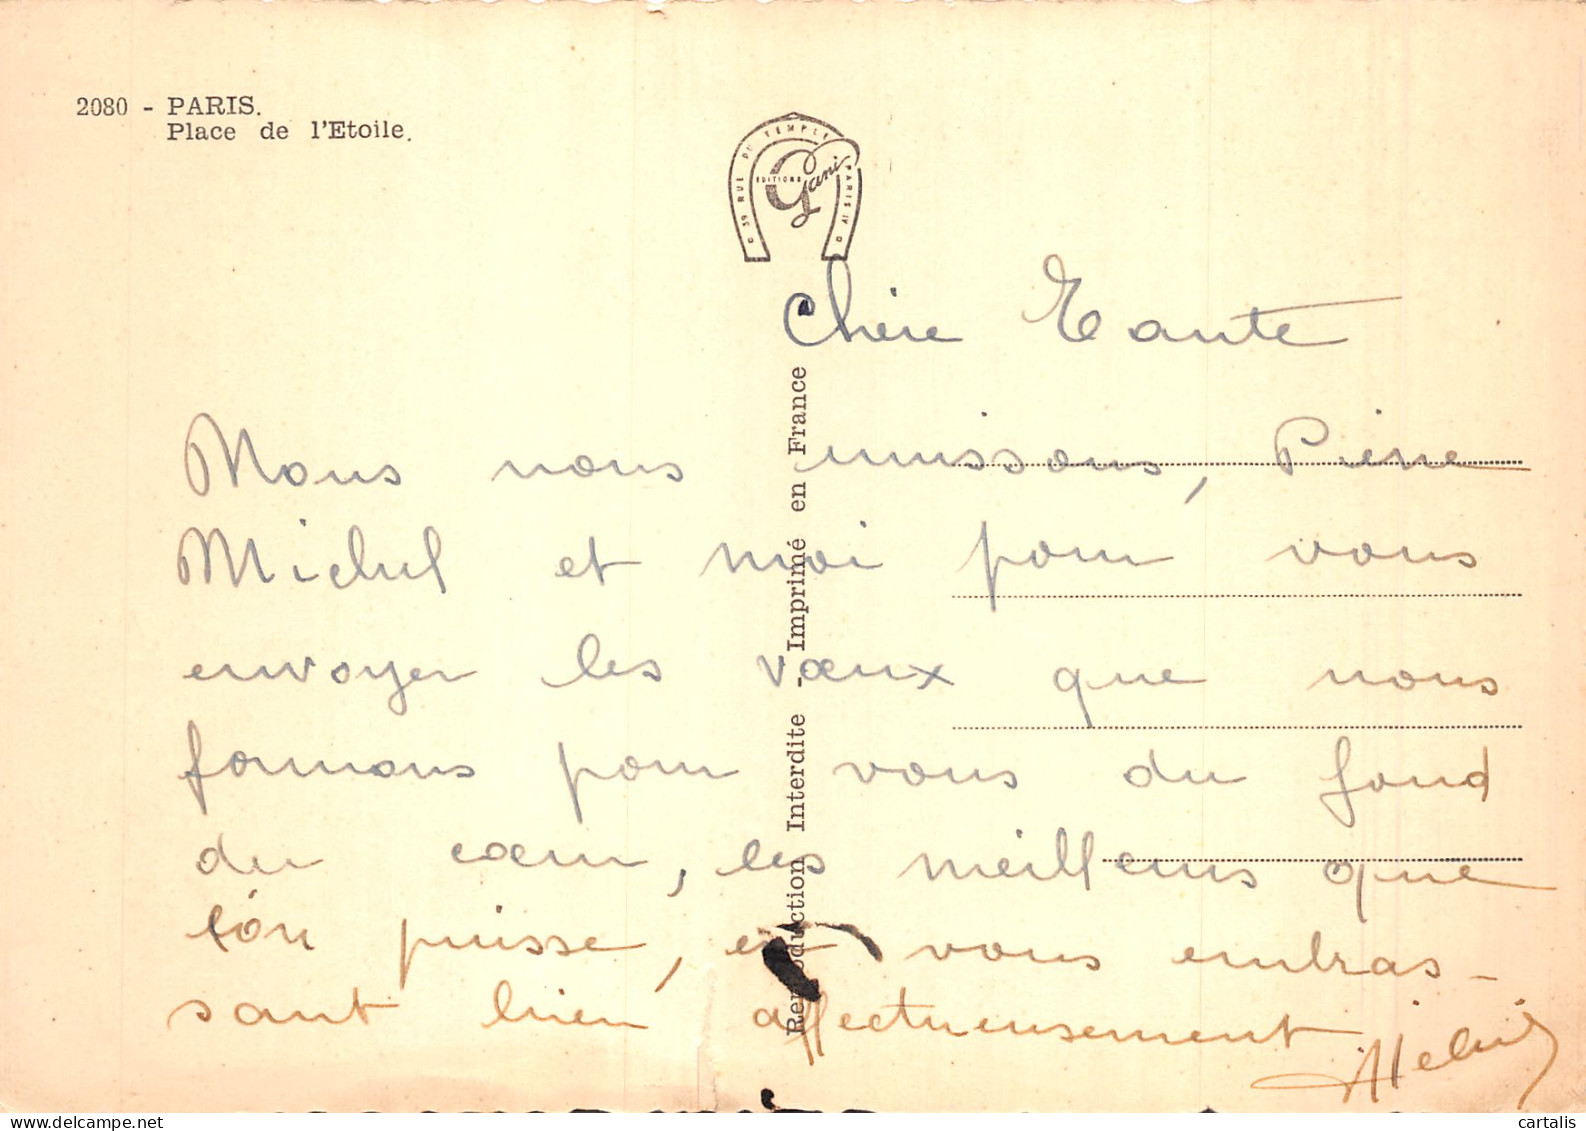 2080 - PARIS.
Place de l'Etoile.
59 RUE DU TEMPLE PARIS IV
EDITIONS
Gani
Reproduction Interdite - Imprimé en France
Chère Tante
Nous nous unissons, Pierre
Michel et moi pour vous
envoyer les vœux que nous
formons pour vous du fond
du cœur, les meilleurs que
l'on puisse, et vous embras-
sant bien affectueusement
cartalis